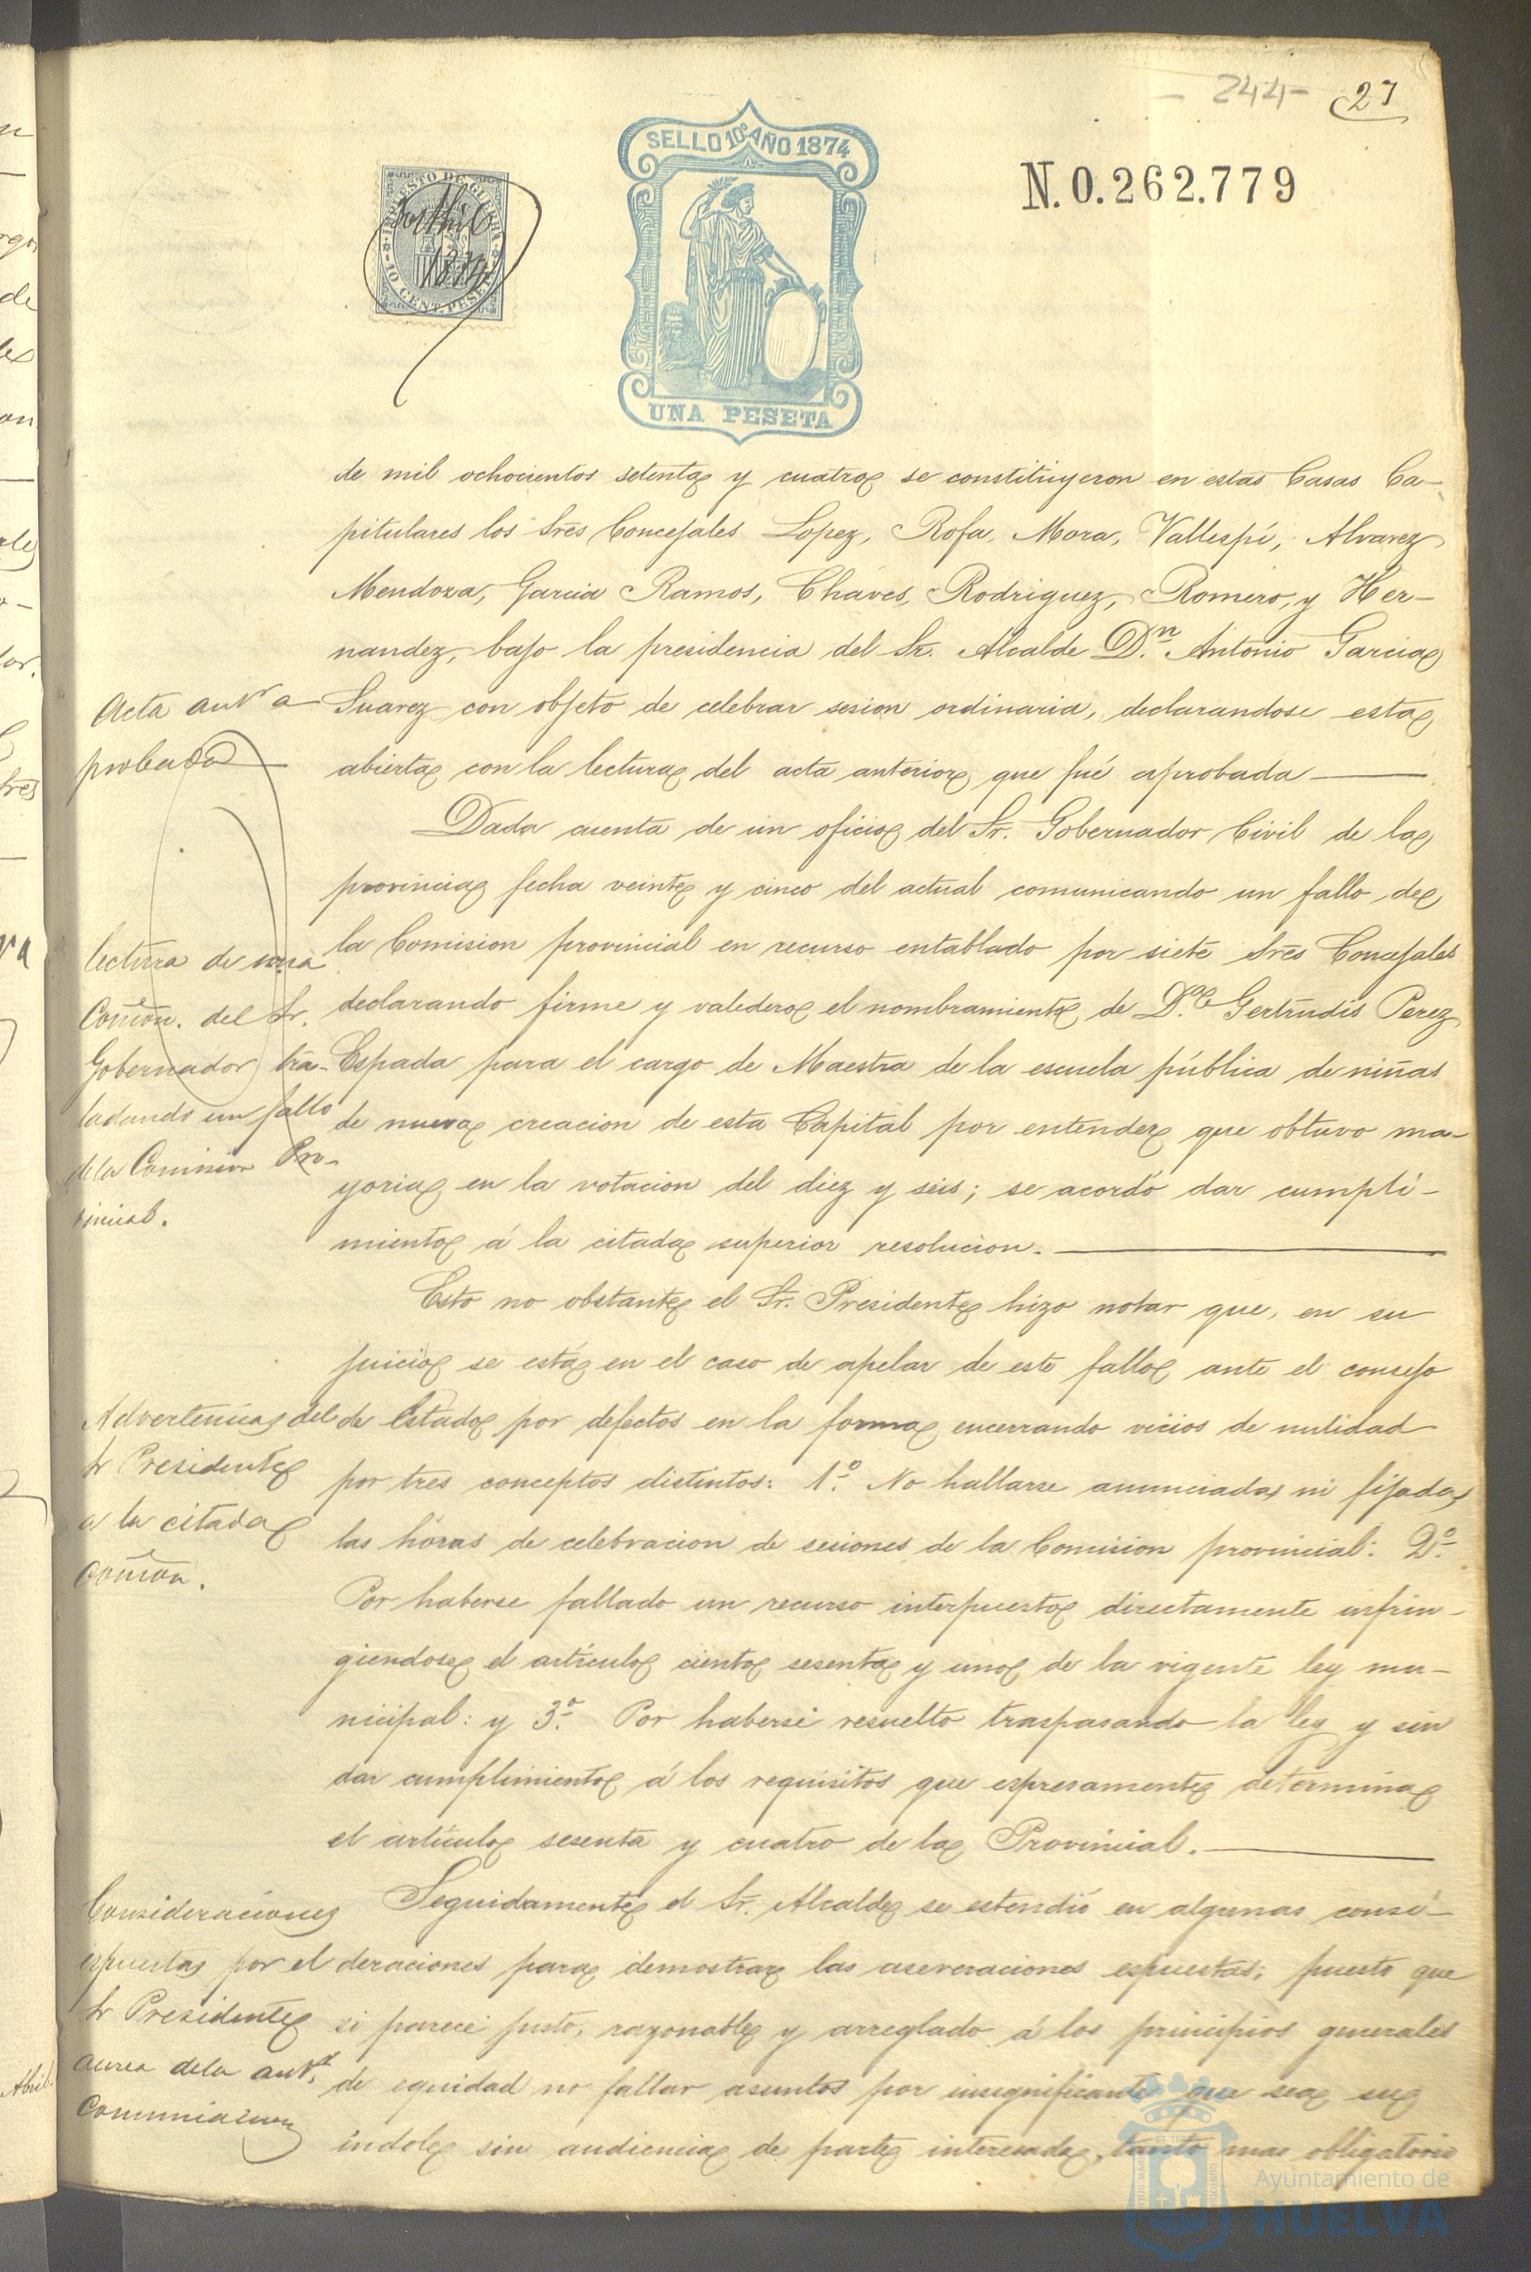 - 244 - 27
SELLO 10º AÑO 1874
N. 0.262.779
IMPUESTO DE GUERRA
1874
10 CENT. PESETA
UNA PESETA
de mil ochocientos setenta y cuatro se constituyeron en estas Casas Ca-
pitulares los Sres Concejales Lopez, Rofa, Mora, Vallespí, Alvarez
Mendoza, Garcia Ramos, Chaves, Rodriguez, Romero, y Her-
nandez, bajo la presidencia del Sr. Alcalde D.n Antonio Garcia
Suarez con objeto de celebrar sesion ordinaria, declarandose esta
abierta con la lectura del acta anterior que fué aprobada
Acta antr a
probada
Dada cuenta de un oficio del Sr. Gobernador Civil de la
provincia fecha veinte y cinco del actual comunicando un fallo de
la Comision provincial en recurso entablado por siete Sres Concejales
declarando firme y valedero el nombramiento de D.ª Gertrudis Perez
Espada para el cargo de Maestra de la escuela pública de niñas
de nueva creacion de esta Capital por entender que obtuvo ma-
yoria en la votacion del diez y seis; se acordó dar cumpli-
miento á la citada superior resolucion.
lectura de una
Comon. del Sr.
Gobernador tra-
ladando un fallo
de la Comision Pro-
vincial.
Esto no obstante el Sr. Presidente hizo notar que, en su
juicio se está en el caso de apelar de este fallo ante el consejo
de Estado por defectos en la forma encerrando vicios de nulidad
por tres conceptos distintos: 1.º No hallarse anunciadas ni fijadas
las horas de celebracion de sesiones de la Comision provincial: 2.º
Por haberse fallado un recurso interpuesto directamente infrin-
giendose el artículo ciento sesenta y uno de la vigente ley mu-
nicipal: y 3.º Por haberse resuelto traspasando la ley y sin
dar cumplimiento á los requisitos que espresamente determina
el artículo sesenta y cuatro de la Provincial.
Advertencias del
Sr Presidente
a la citada
Comon.
Seguidamente el Sr. Alcalde se estendió en algunas consi-
deraciones para demostrar las aseveraciones espuestas; puesto que
si parece justo, razonable y arreglado á los principios generales
de equidad no fallar asuntos por insignificante que sea su
índole sin audiencia de parte interesada, tanto mas obligatorio
Consideraciones
espuestas por el
Sr Presidente
acerca de la antr.
Comunicacion
Abril
Ayuntamiento de
HUELVA